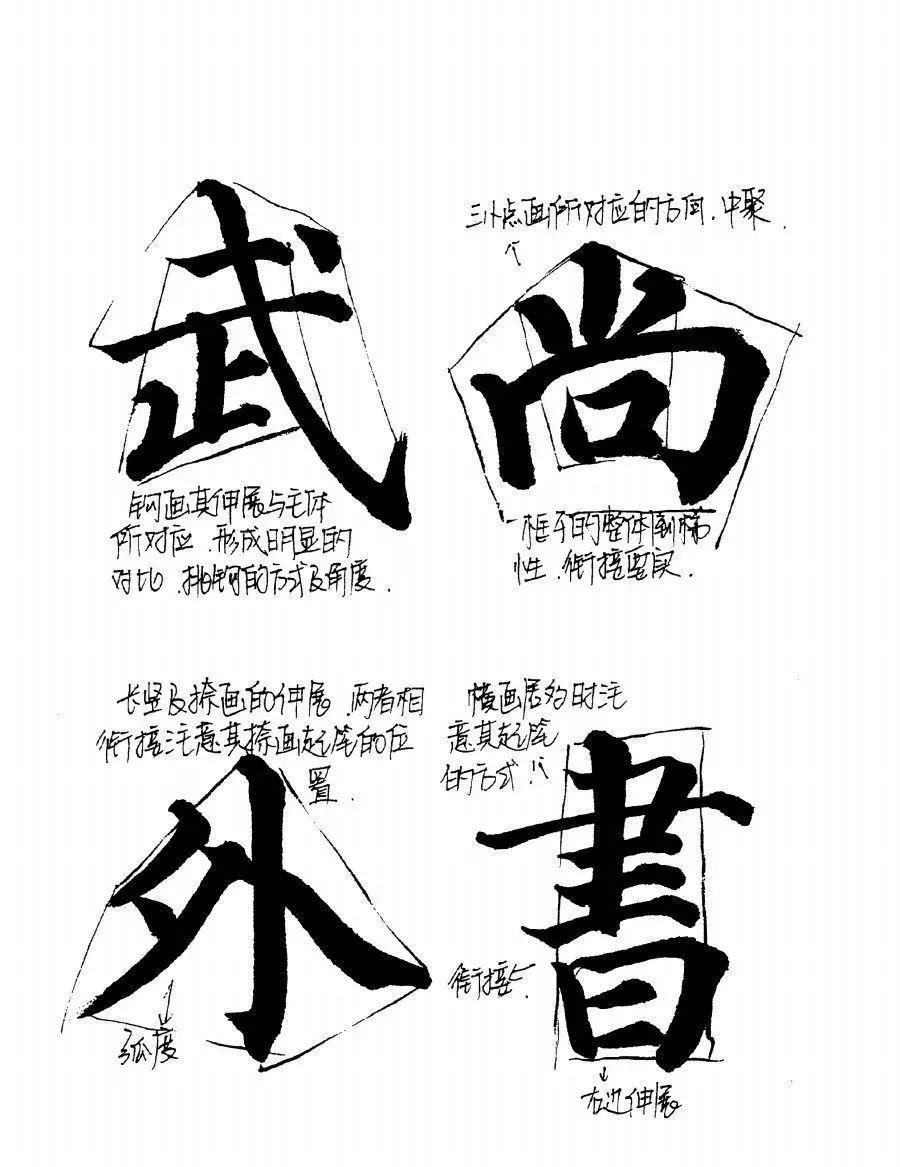 武
钩画其伸展与主体
所对应.形成明显的
对比.挑钩的方式及角度.
三个点画所对应的方向.中聚.
尚
框子的整体倒梯
性.衔接要实.
长竖及捺画的伸展.两者相
衔接注意其捺画起笔的位
置.
外
弧度
横画居多时注
意其起笔
的方式.
書
衔接
右边伸展